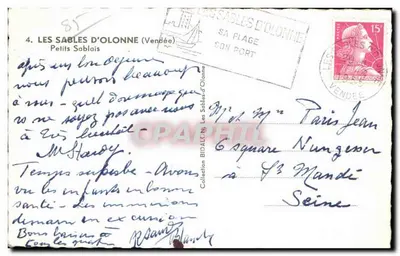 85
4. LES SABLES D'OLONNE (Vendée)
Petits Sablois
LES SABLES D'OLONNE
SA PLAGE
SON PORT
15F
VENDÉE
après un bon déjeuner
nous pensons beaucoup
à vous - quel dommage que
vous ne soyez pas avec nous
à très bientôt -
Temps superbe - Avons
vu les enfants en bonne
santé - Les
demain en excursion
Bons baisers à
tous les quatre
Collection BIDAL, Les Sables d'Olonne
CPAPHIL
Mr et Mme Paris Jean
Square Nungesser
à St Mandé
Seine